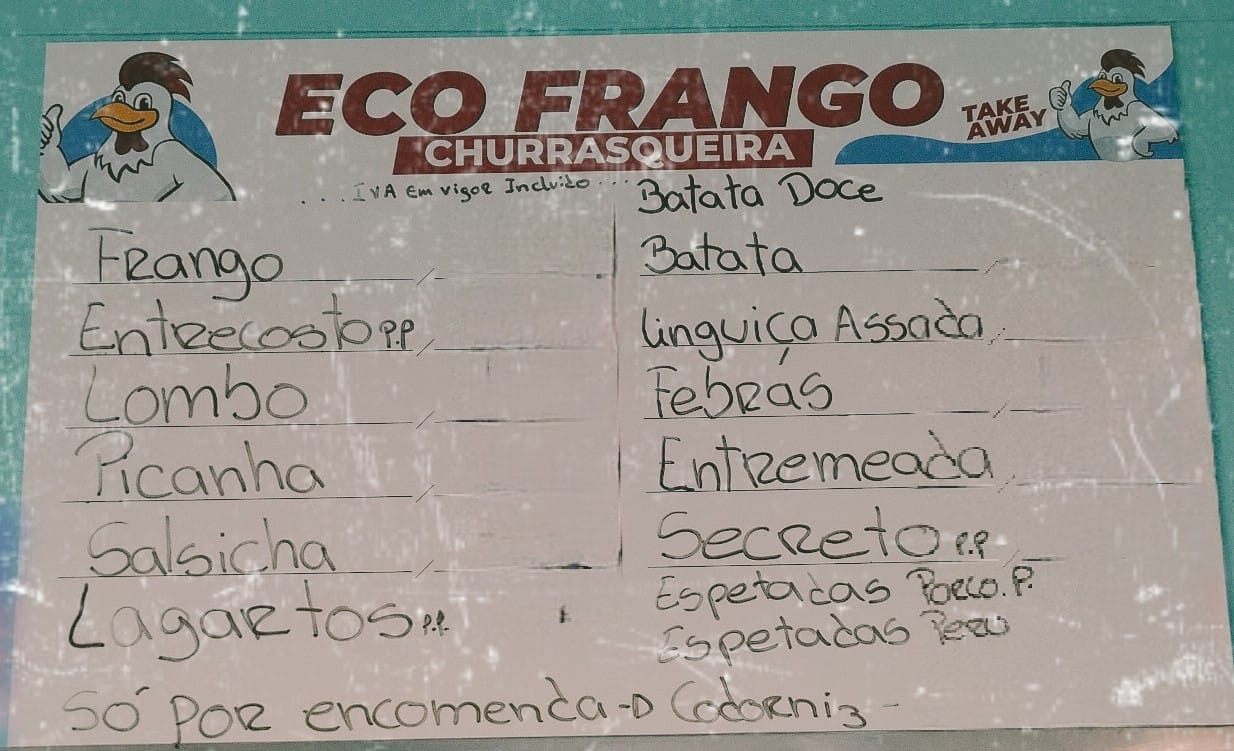 ECO FRANGO
CHURRASQUEIRA
TAKE
AWAY
...IVA Em vigor Incluido...
Frango
Entrecosto P.P
Lombo
Picanha
Salsicha
Lagartos P.P.
Batata Doce
Batata
Linguiça Assada
Febras
Entremeada
Secreto P.P
Espetadas Porco. P.
Espetadas Peru
Só por encomenda -D Codorniz -